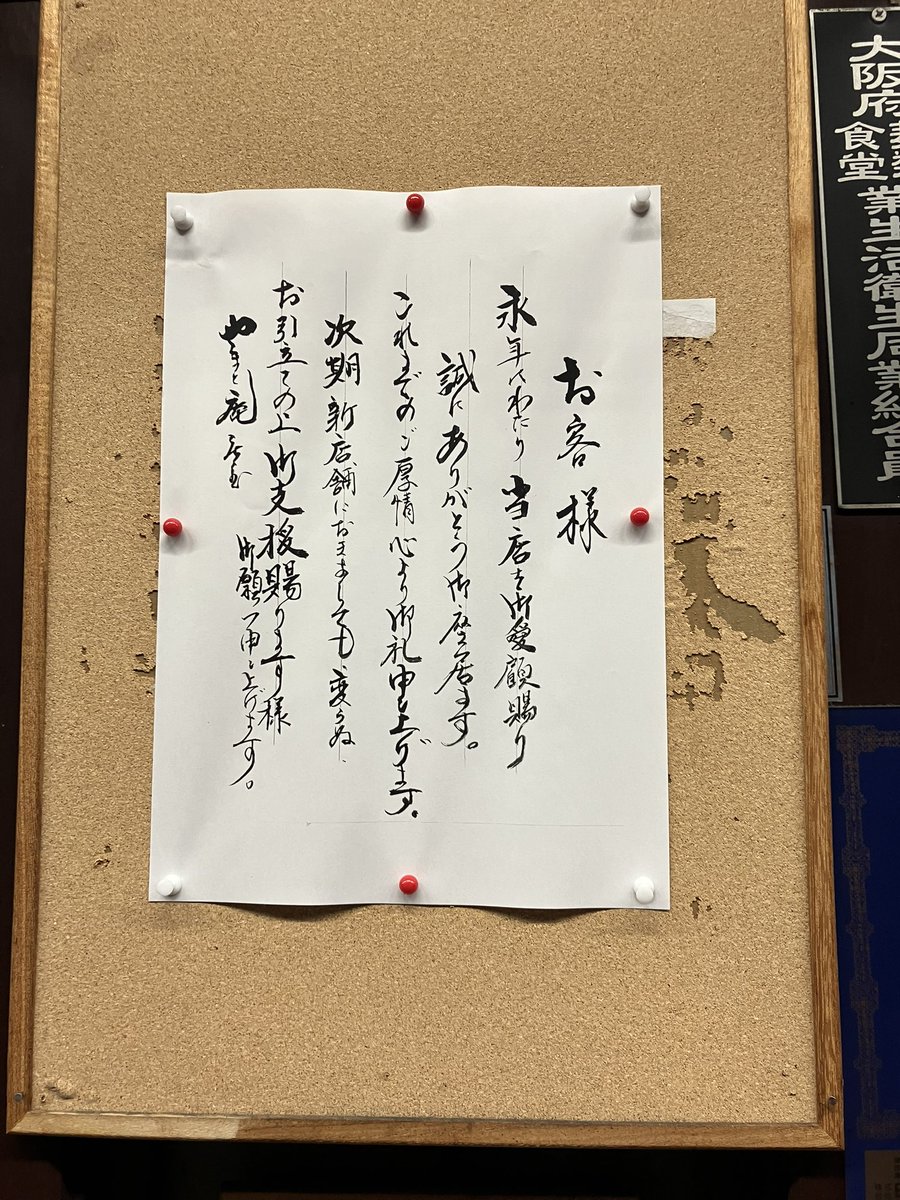 お客様
永年にわたり当店を御愛顧賜り
誠にありがとう御座居ます。
これまでのご厚情心より御礼申し上げます。
次期新店舗におきましても、変らぬ、
お引立ての上御支援賜ります様
御願い申し上げます。
やまと庵
大阪府
食堂
業生活衛生同業組合員